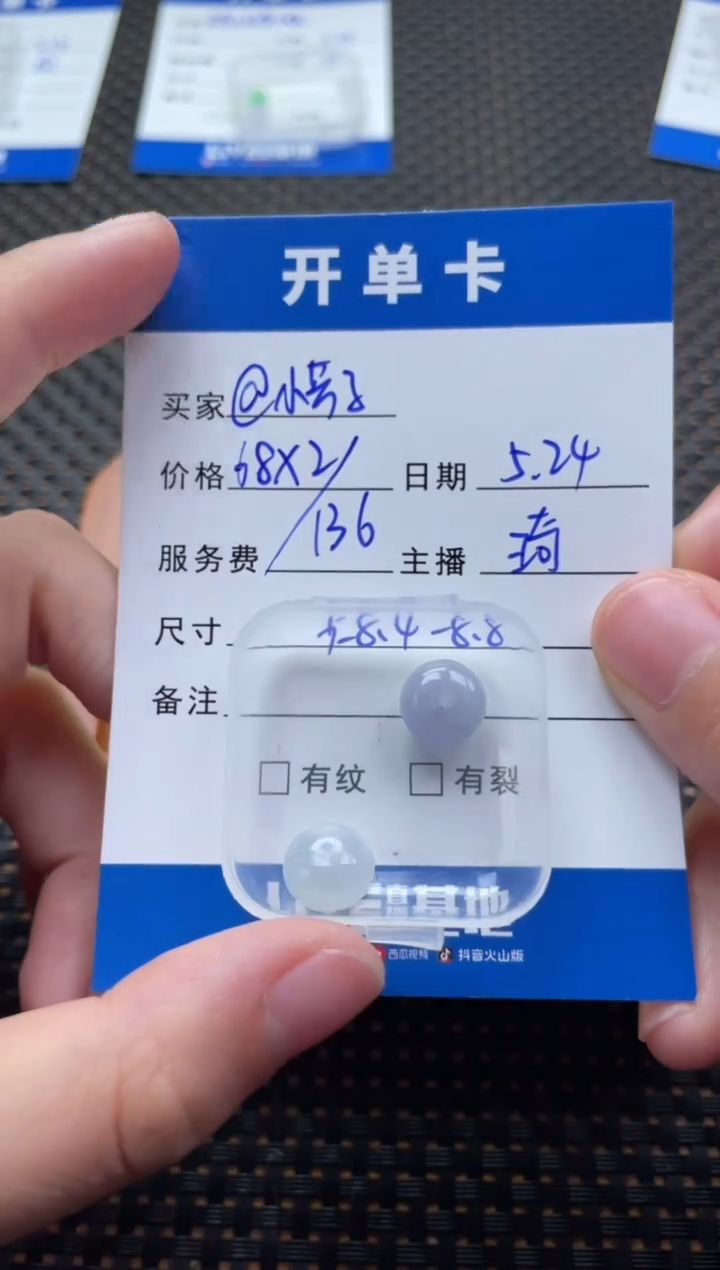 开单卡
买家 @小号子
价格 68X2/ 日期 5.24
服务费 /136 主播 琦
尺寸 5-8.4-8.8
备注
□有纹 □有裂
基地
西瓜视频 抖音火山版